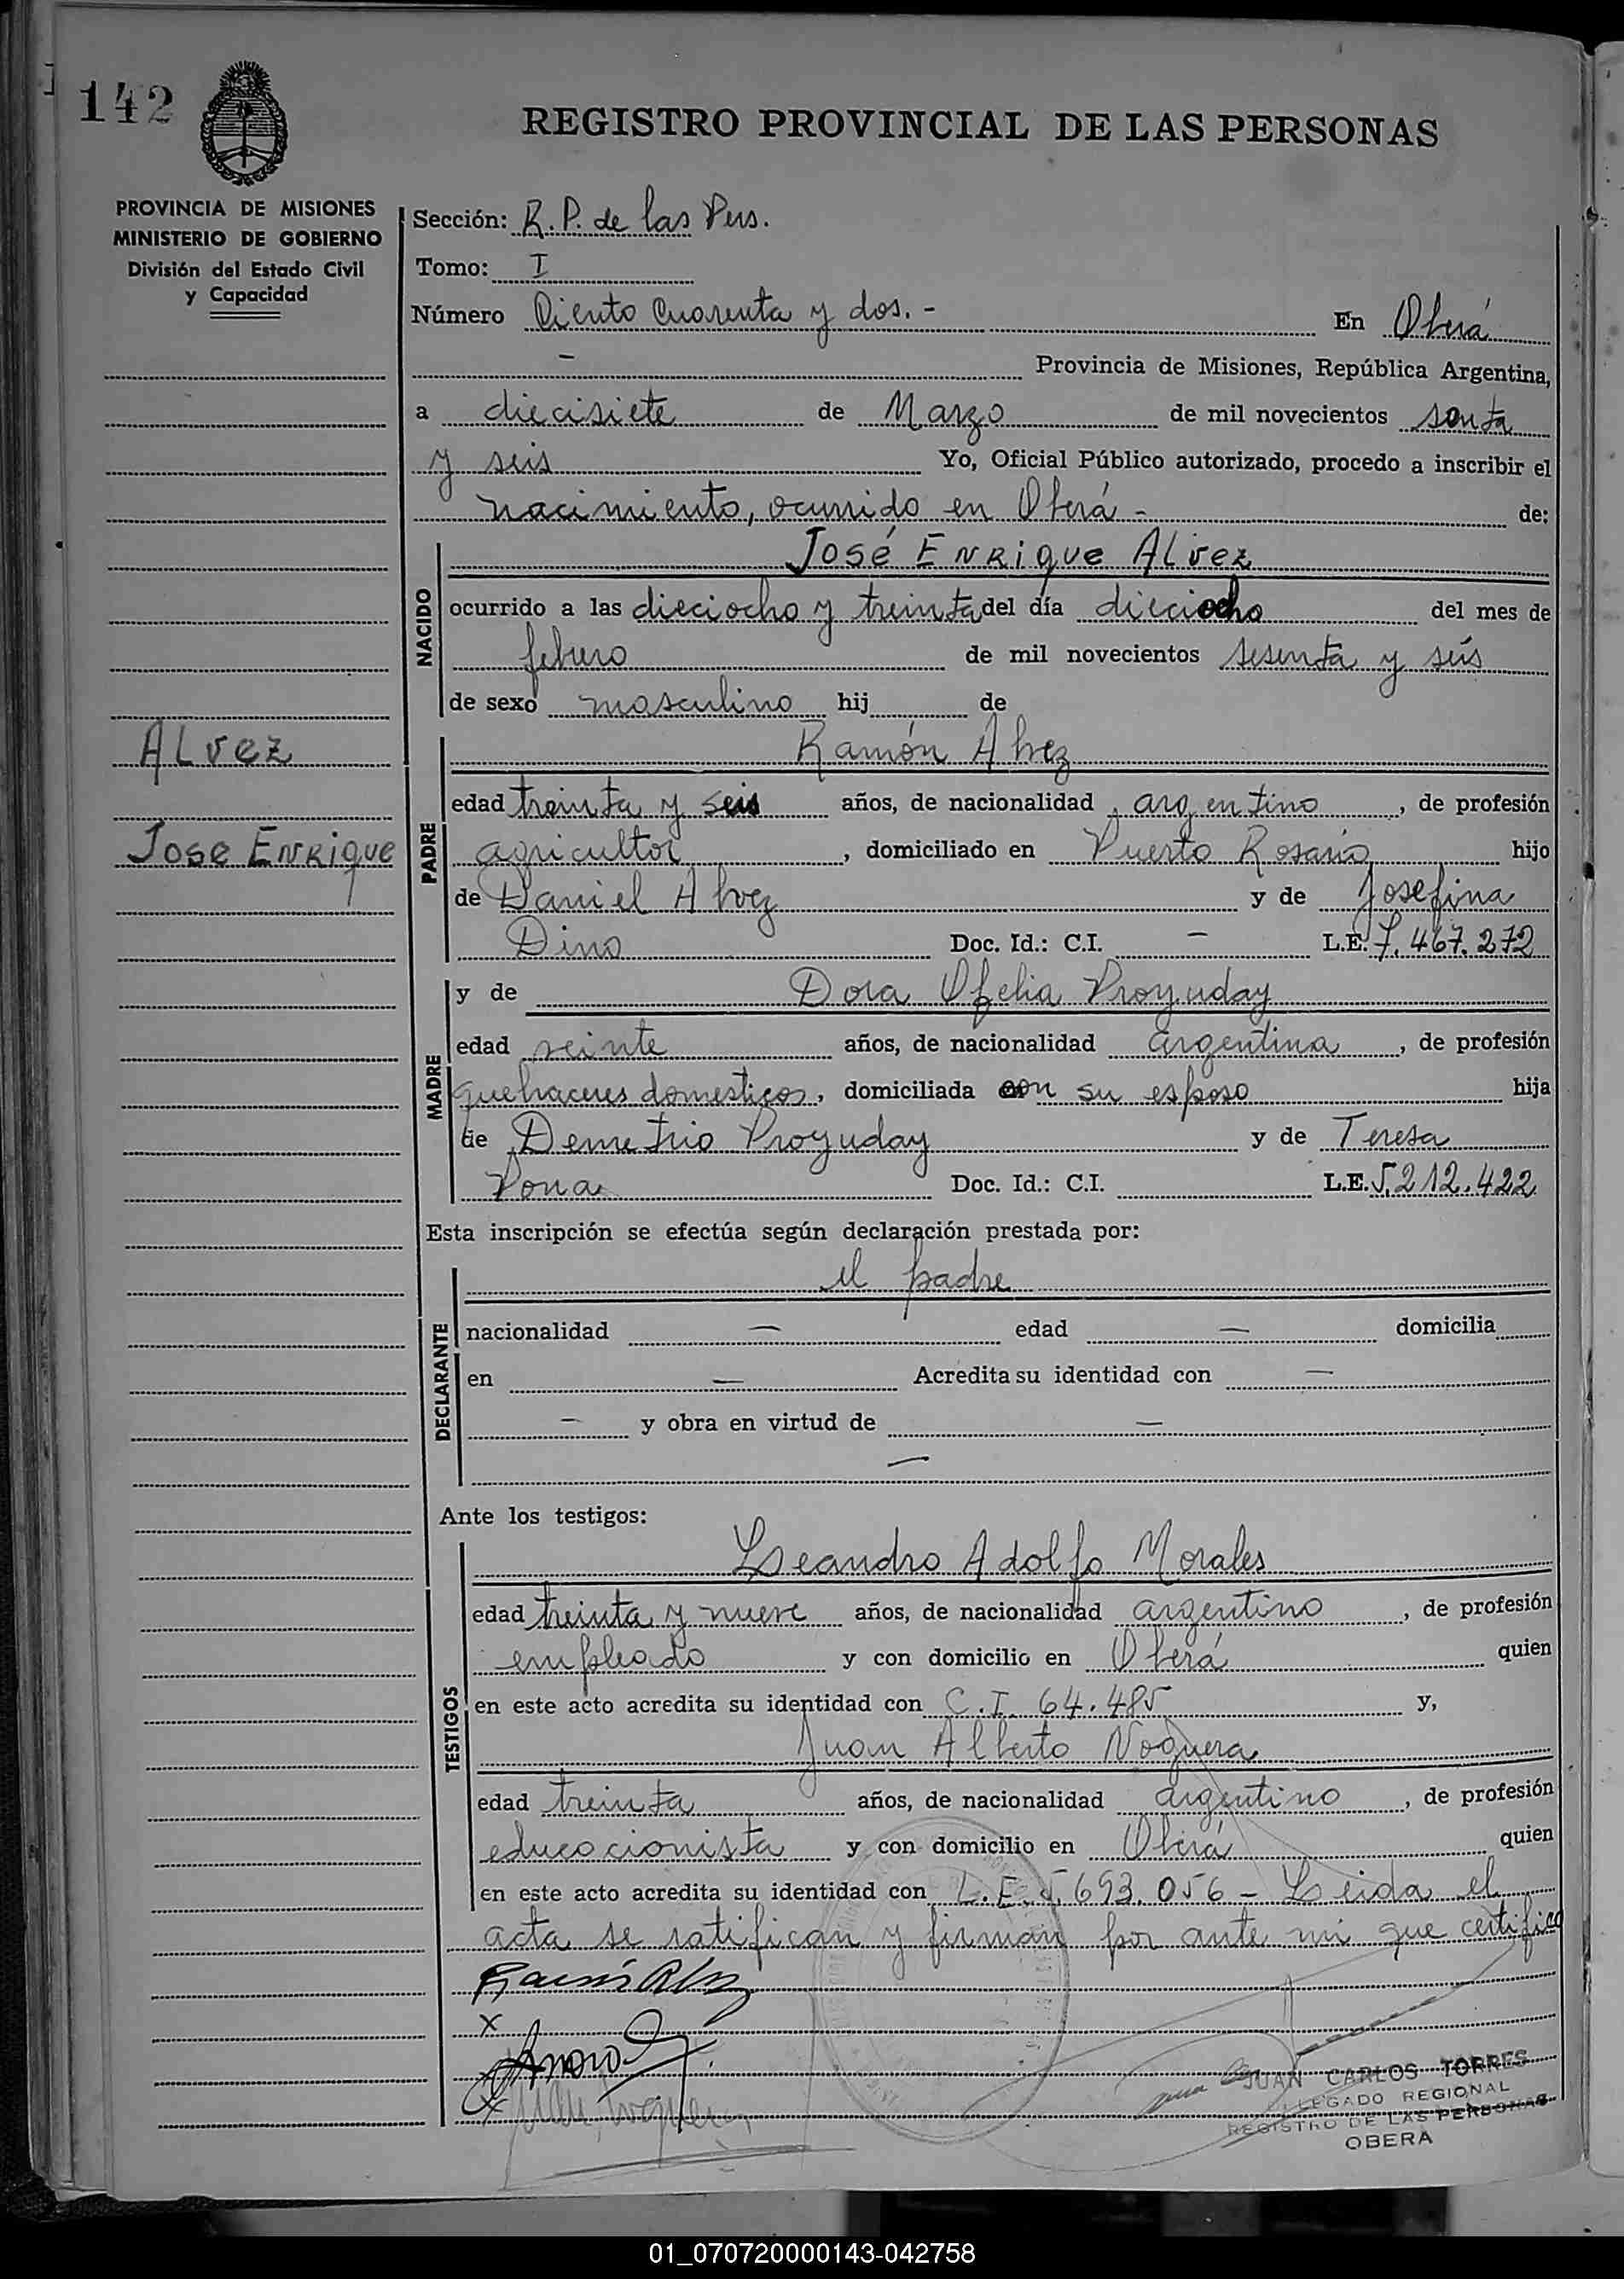 142
REGISTRO PROVINCIAL DE LAS PERSONAS
PROVINCIA DE MISIONES
MINISTERIO DE GOBIERNO
División del Estado Civil
y Capacidad
Sección: R.P. de las Pers.
Tomo: I
Número Ciento Cuarenta y dos. - En Oberá
- Provincia de Misiones, República Argentina,
a diecisiete de Marzo de mil novecientos senta
y seis Yo, Oficial Público autorizado, procedo a inscribir el
nacimiento, ocurrido en Oberá - de:
NACIDO
José Enrique Alvez
ocurrido a las dieciocho y treinta del día dieciocho del mes de
febrero de mil novecientos sesenta y seis
de sexo masculino hij de
ALvez
Jose Enrique
PADRE
Ramón Alvez
edad treinta y seis años, de nacionalidad argentino, de profesión
agricultor, domiciliado en Puerto Rosario hijo
de Daniel Alvez y de Josefina
Dino Doc. Id.: C.I. - L.E. 7.467.272
MADRE
y de Dora Ofelia Proyuday
edad veinte años, de nacionalidad argentina, de profesión
quehaceres domesticos, domiciliada con su esposo hija
de Demetrio Proyuday y de Teresa
Pona Doc. Id.: C.I. L.E. 5.212.422
Esta inscripción se efectúa según declaración prestada por:
DECLARANTE
el padre
nacionalidad - edad - domicilia
en - Acredita su identidad con -
- y obra en virtud de -
-
Ante los testigos:
TESTIGOS
Leandro Adolfo Morales
edad treinta y nueve años, de nacionalidad argentino, de profesión
empleado y con domicilio en Oberá quien
en este acto acredita su identidad con C.I. 64.485 y,
Juan Alberto Noguera
edad treinta años, de nacionalidad argentino, de profesión
educacionista y con domicilio en Oberá quien
en este acto acredita su identidad con L.E. 5.693.056 - Leida el
acta se ratifican y firman por ante mi que certifico
Ramón Alvez
x
x Juan Noguera
JUAN CARLOS TORRES
DELEGADO REGIONAL
REGISTRO DE LAS PERSONAS
OBERA
01_070720000143-042758